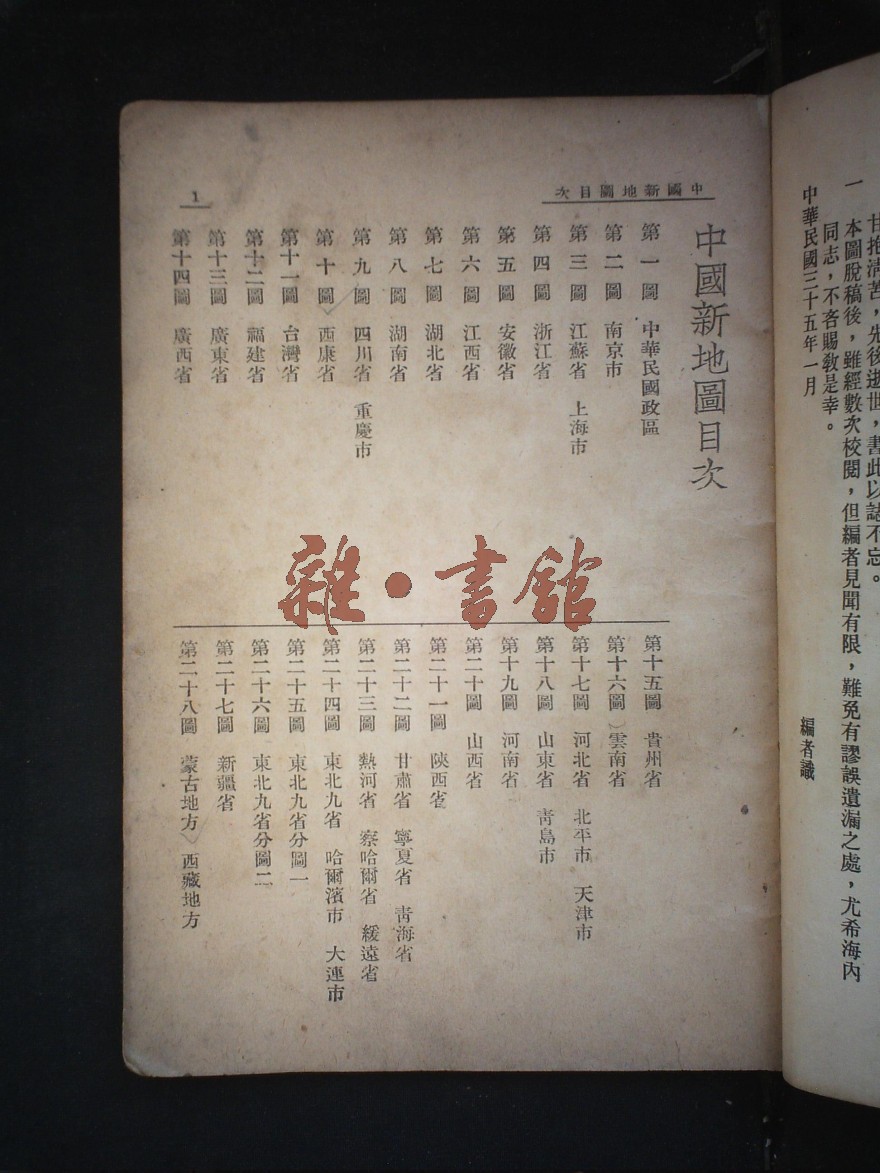 甘抱清苦，先後逝世，書此以誌不忘。
一　本圖脫稿後，雖經數次校閱，但編者見聞有限，難免有謬誤遺漏之處，尤希海內
同志，不吝賜教是幸。
中華民國三十五年一月
編者識
中國新地圖目次
1
中國新地圖目次
第一圖　中華民國政區
第二圖　南京市
第三圖　江蘇省　上海市
第四圖　浙江省
第五圖　安徽省
第六圖　江西省
第七圖　湖北省
第八圖　湖南省
第九圖　四川省　重慶市
第十圖　西康省
第十一圖　台灣省
第十二圖　福建省
第十三圖　廣東省
第十四圖　廣西省
第十五圖　貴州省
第十六圖　雲南省
第十七圖　河北省　北平市　天津市
第十八圖　山東省　靑島市
第十九圖　河南省
第二十圖　山西省
第二十一圖　陝西省
第二十二圖　甘肅省　寧夏省　靑海省
第二十三圖　熱河省　察哈爾省　綏遠省
第二十四圖　東北九省　哈爾濱市　大連市
第二十五圖　東北九省分圖一
第二十六圖　東北九省分圖二
第二十七圖　新疆省
第二十八圖　蒙古地方　西藏地方
雜·書館